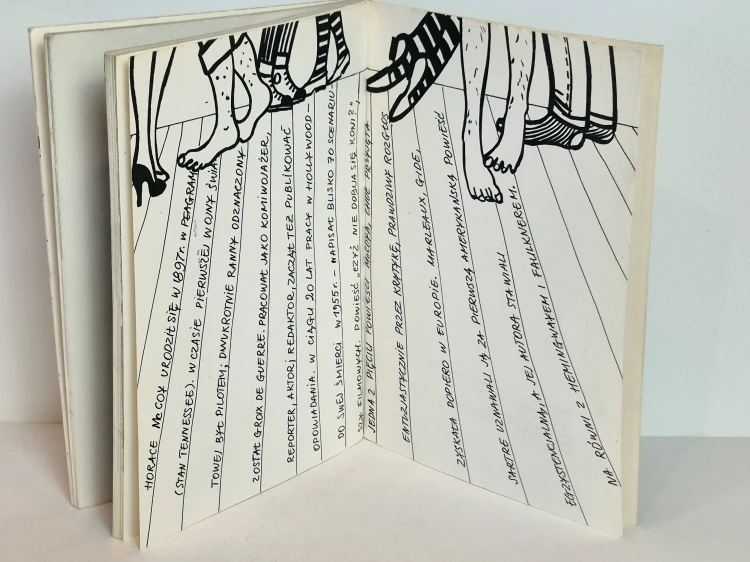 HORACE McCOY URODZIŁ SIĘ W 1897r. W PEAGRAM
(STAN TENNESSEE). W CZASIE PIERWSZEJ WOJNY ŚWIA
TOWEJ BYŁ PILOTEM; DWUKROTNIE RANNY ODZNACZONY
ZOSTAŁ CROIX DE GUERRE. PRACOWAŁ JAKO KOMIWOJAŻER,
REPORTER, AKTOR I REDAKTOR, ZACZĄŁ TEŻ PUBLIKOWAĆ
OPOWIADANIA. W CIĄGU 20 LAT PRACY W HOLLYWOOD –
DO SWEJ ŚMIERCI W 1955r. – NAPISAŁ BLISKO 70 SCENARIU-
SZY FILMOWYCH. POWIEŚĆ „CZYŻ NIE DOBIJA SIĘ KONI?",
JEDNA Z PIĘCIU POWIEŚCI McCOYA, CHOĆ PRZYJĘTA
ENTUZJASTYCZNIE PRZEZ KRYTYKĘ, PRAWDZIWY ROZGŁOS
ZYSKAŁA DOPIERO W EUROPIE. MARLEAUX, GIDE,
SARTRE UZNAWALI JĄ ZA PIERWSZĄ AMERYKAŃSKĄ POWIEŚĆ
EGZYSTENCJALNĄ, A JEJ AUTORA STAWIALI
NA RÓWNI Z HEMINGWAYEM I FAULKNEREM.